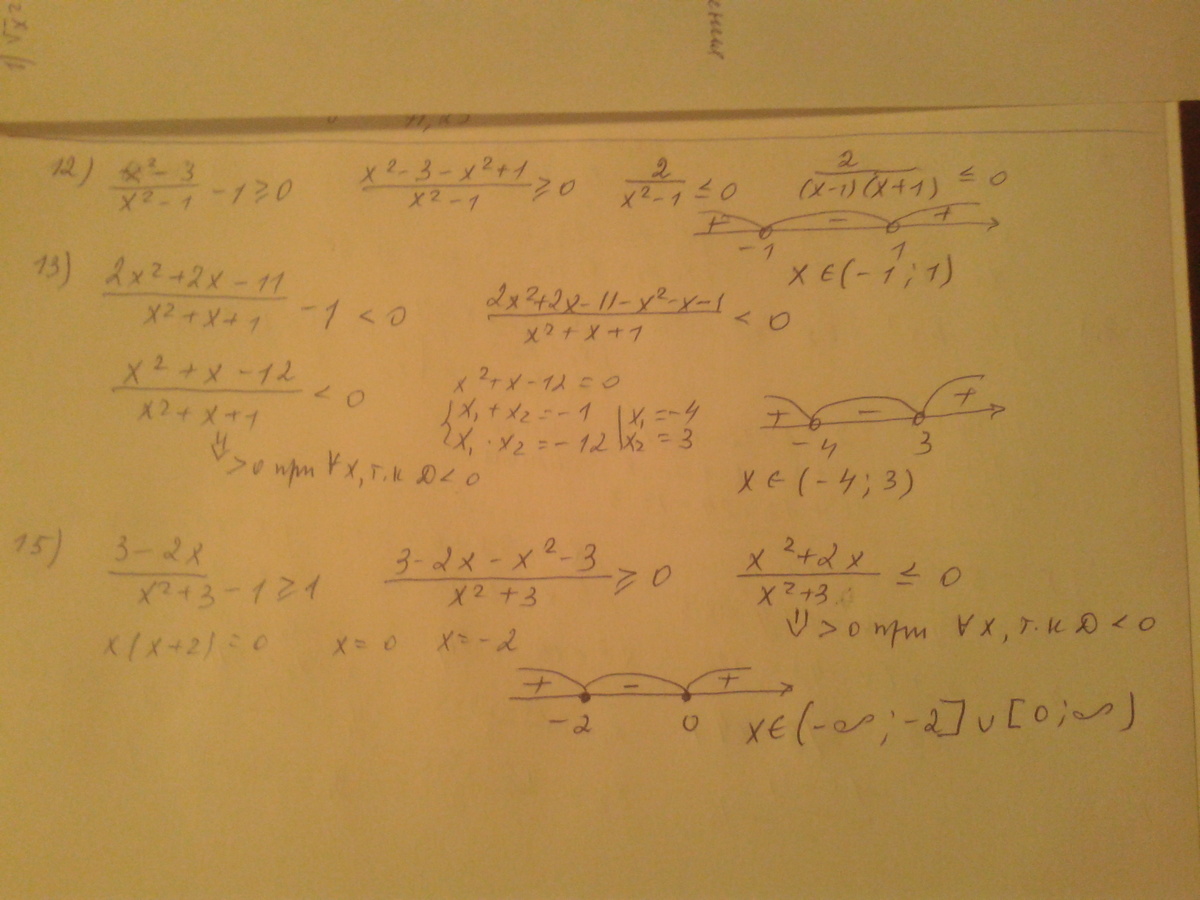 1) √x²
ения
12) (x²-3)/(x²-1) - 1 ≥ 0   (x²-3-x²+1)/(x²-1) ≥ 0   2/(x²-1) ≤ 0   2/((x-1)(x+1)) ≤ 0
+ - +
-1 1
x ∈ (-1; 1)
13) (2x²+2x-11)/(x²+x+1) - 1 < 0   (2x²+2x-11-x²-x-1)/(x²+x+1) < 0
(x²+x-12)/(x²+x+1) < 0   x²+x-12=0
{x₁+x₂=-1 |x₁=-4
{x₁·x₂=-12 |x₂=3
+ - +
-4 3
⇓ >0 при ∀x, т.к D<0
x ∈ (-4; 3)
15) (3-2x)/(x²+3) - 1 ≥ 1   (3-2x-x²-3)/(x²+3) ≥ 0   (x²+2x)/(x²+3) ≤ 0
⇓ >0 при ∀x, т.к D<0
x(x+2)=0   x=0   x=-2
+ - +
-2 0
x∈(-∞; -2] ∪ [0; ∞)